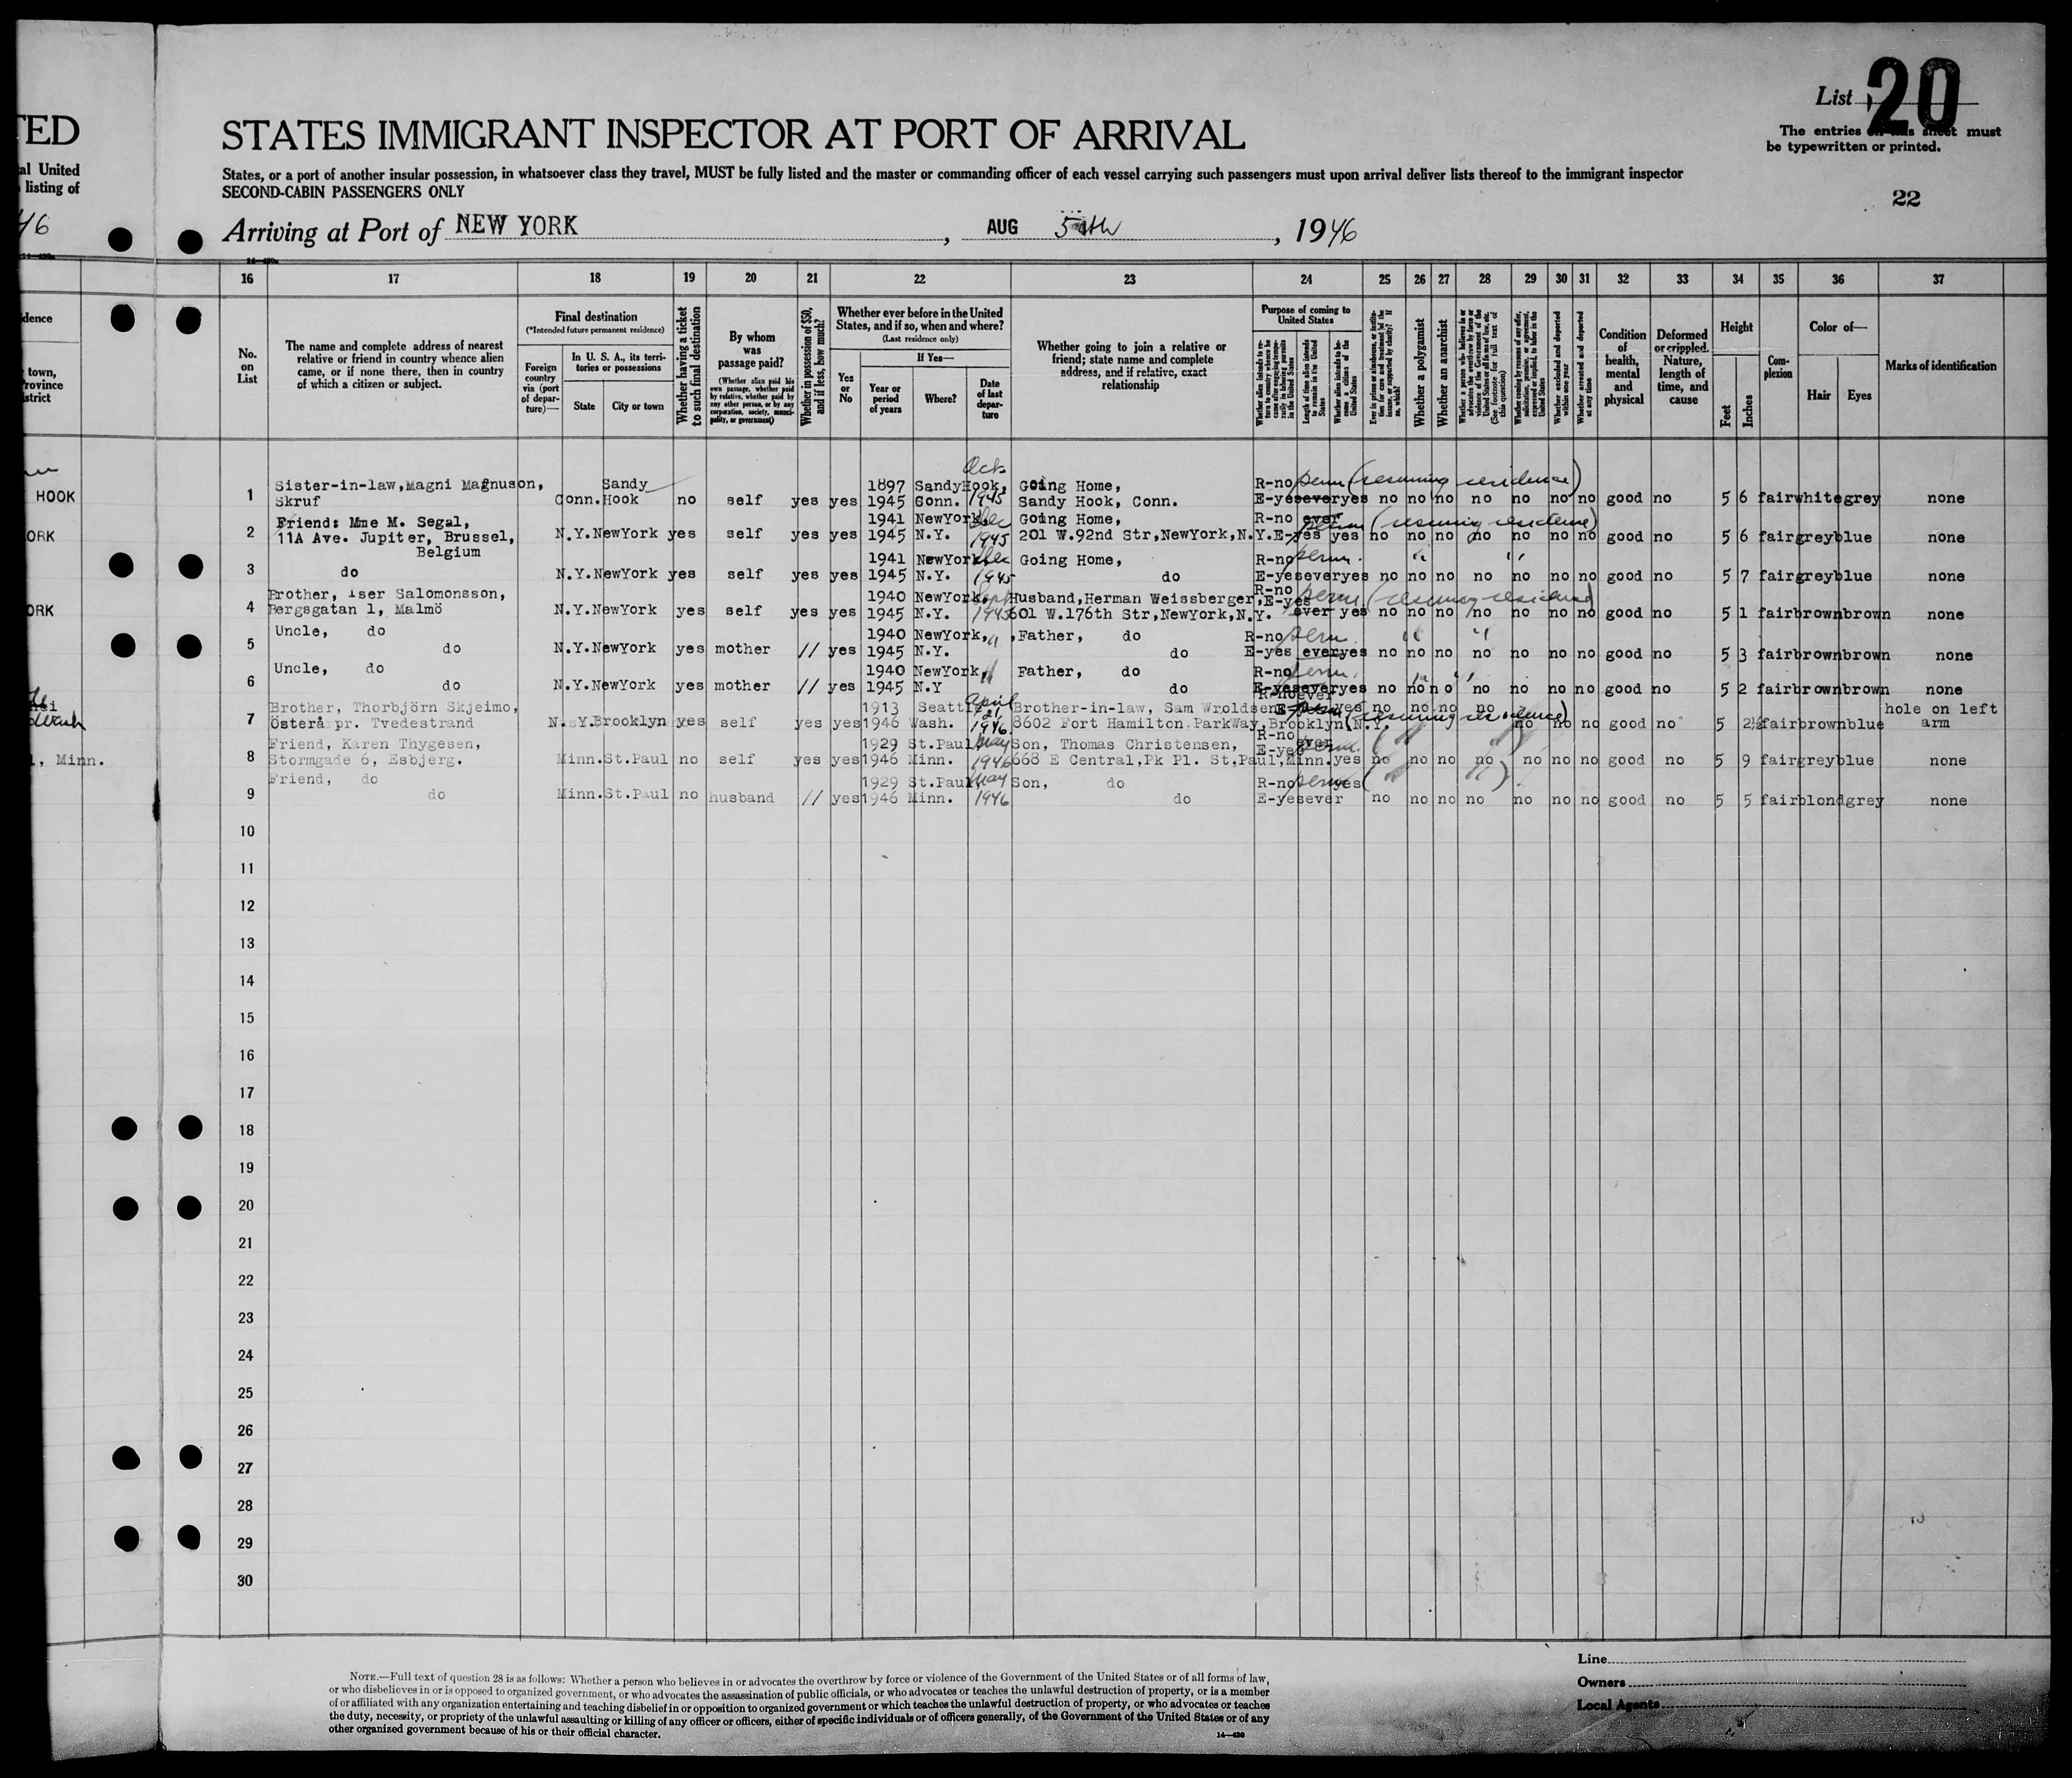 TED
al United
listing of
46
STATES IMMIGRANT INSPECTOR AT PORT OF ARRIVAL
List 20
The entries on this sheet must
be typewritten or printed.
States, or a port of another insular possession, in whatsoever class they travel, MUST be fully listed and the master or commanding officer of each vessel carrying such passengers must upon arrival deliver lists thereof to the immigrant inspector
SECOND-CABIN PASSENGERS ONLY
22
Arriving at Port of NEW YORK, AUG 5th, 1946
16 17 18 19 20 21 22 23 24 25 26 27 28 29 30 31 32 33 34 35 36 37
No. on List
The name and complete address of nearest
relative or friend in country whence alien
came, or if none there, then in country
of which a citizen or subject.
Final destination
(*Intended future permanent residence)
Foreign country via (port of departure)—
In U. S. A., its territories or possessions
State
City or town
Whether having a ticket to such final destination
By whom was passage paid?
(Whether alien paid his own passage, whether paid by relative, whether paid by any other person, or by any corporation, society, municipality, or government)
Whether in possession of $50, and if less, how much?
Whether ever before in the United
States, and if so, when and where?
(Last residence only)
Yes or No
If Yes—
Year or period of years
Where?
Date of last departure
Whether going to join a relative or
friend; state name and complete
address, and if relative, exact
relationship
Purpose of coming to United States
Whether a polygamist
Whether an anarchist
Condition of health, mental and physical
Deformed or crippled. Nature, length of time, and cause
Height
Feet
Inches
Complexion
Color of—
Hair
Eyes
Marks of identification
HOOK
1 Sister-in-law,Magni Magnuson, Skruf Conn. Sandy Hook no self yes yes 1897 1945 SandyHook, Conn. Oct 1945 Going Home, Sandy Hook, Conn. R-no E-yes ever yes perm (resuming residence) no no no no no no no good no 5 6 fair white grey none
ORK
2 Friend: Mme M. Segal, 11A Ave. Jupiter, Brussel, Belgium N.Y. NewYork yes self yes yes 1941 1945 NewYork, N.Y. Dec 1945 Going Home, 201 W.92nd Str,NewYork,N.Y. R-no E-yes ever yes perm (resuming residence) no no no no no no no good no 5 6 fair grey blue none
3 do N.Y. NewYork yes self yes yes 1941 1945 NewYork N.Y. Dec 1945 Going Home, do R-no E-yes ever yes perm. " " no no no no no no no good no 5 7 fair grey blue none
ORK
4 Brother, Iser Salomonsson, Bergsgatan 1, Malmö N.Y. NewYork yes self yes yes 1940 1945 NewYork, N.Y. Sept 1945 Husband,Herman Weissberger, 601 W.176th Str,NewYork,N.Y. R-no E-yes ever yes perm (resuming residence) no no no no no no no good no 5 1 fair brown brown none
5 Uncle, do do N.Y. NewYork yes mother // yes 1940 1945 NewYork, N.Y. " Father, do do R-no E-yes ever yes perm. " " no no no no no no no good no 5 3 fair brown brown none
6 Uncle, do do N.Y. NewYork yes mother // yes 1940 1945 NewYork, N.Y " Father, do do R-no E-yes ever yes perm. " " no no no no no no no good no 5 2 fair brown brown none
7 Brother, Thorbjörn Skjeimo, Österå pr. Tvedestrand N.Y. Brooklyn yes self yes yes 1913 1946 Seattle Wash. April 21 1946 Brother-in-law, Sam Wroldsen 8602 Fort Hamilton ParkWay,Brooklyn,N.Y. R-no ever E-yes yes perm (resuming residence) no no no no no no no good no 5 2½ fair brown blue hole on left arm
l, Minn.
8 Friend, Karen Thygesen, Stormgade 6, Esbjerg. Minn. St.Paul no self yes yes 1929 1946 St.Paul Minn. May 1946 Son, Thomas Christensen, 668 E Central,Pk Pl. St,Paul,Minn. R-no E-yes ever yes perm. (" ") no no no no no no no good no 5 9 fair grey blue none
9 Friend, do do Minn. St.Paul no husband // yes 1929 1946 St.Paul, Minn. May 1946 Son, do do R-no E-yes ever yes perm (" ") no no no no no no no good no 5 5 fair blond grey none
10
11
12
13
14
15
16
17
18
19
20
21
22
23
24
25
26
27
28
29
30
NOTE.—Full text of question 28 is as follows: Whether a person who believes in or advocates the overthrow by force or violence of the Government of the United States or of all forms of law,
or who disbelieves in or is opposed to organized government, or who advocates the assassination of public officials, or who advocates or teaches the unlawful destruction of property, or is a member
of or affiliated with any organization entertaining and teaching disbelief in or opposition to organized government or which teaches the unlawful destruction of property, or who advocates or teaches
the duty, necessity, or propriety of the unlawful assaulting or killing of any officer or officers, either of specific individuals or of officers generally, of the Government of the United States or of any
other organized government because of his or their official character.
14—430
Line
Owners
Local Agents